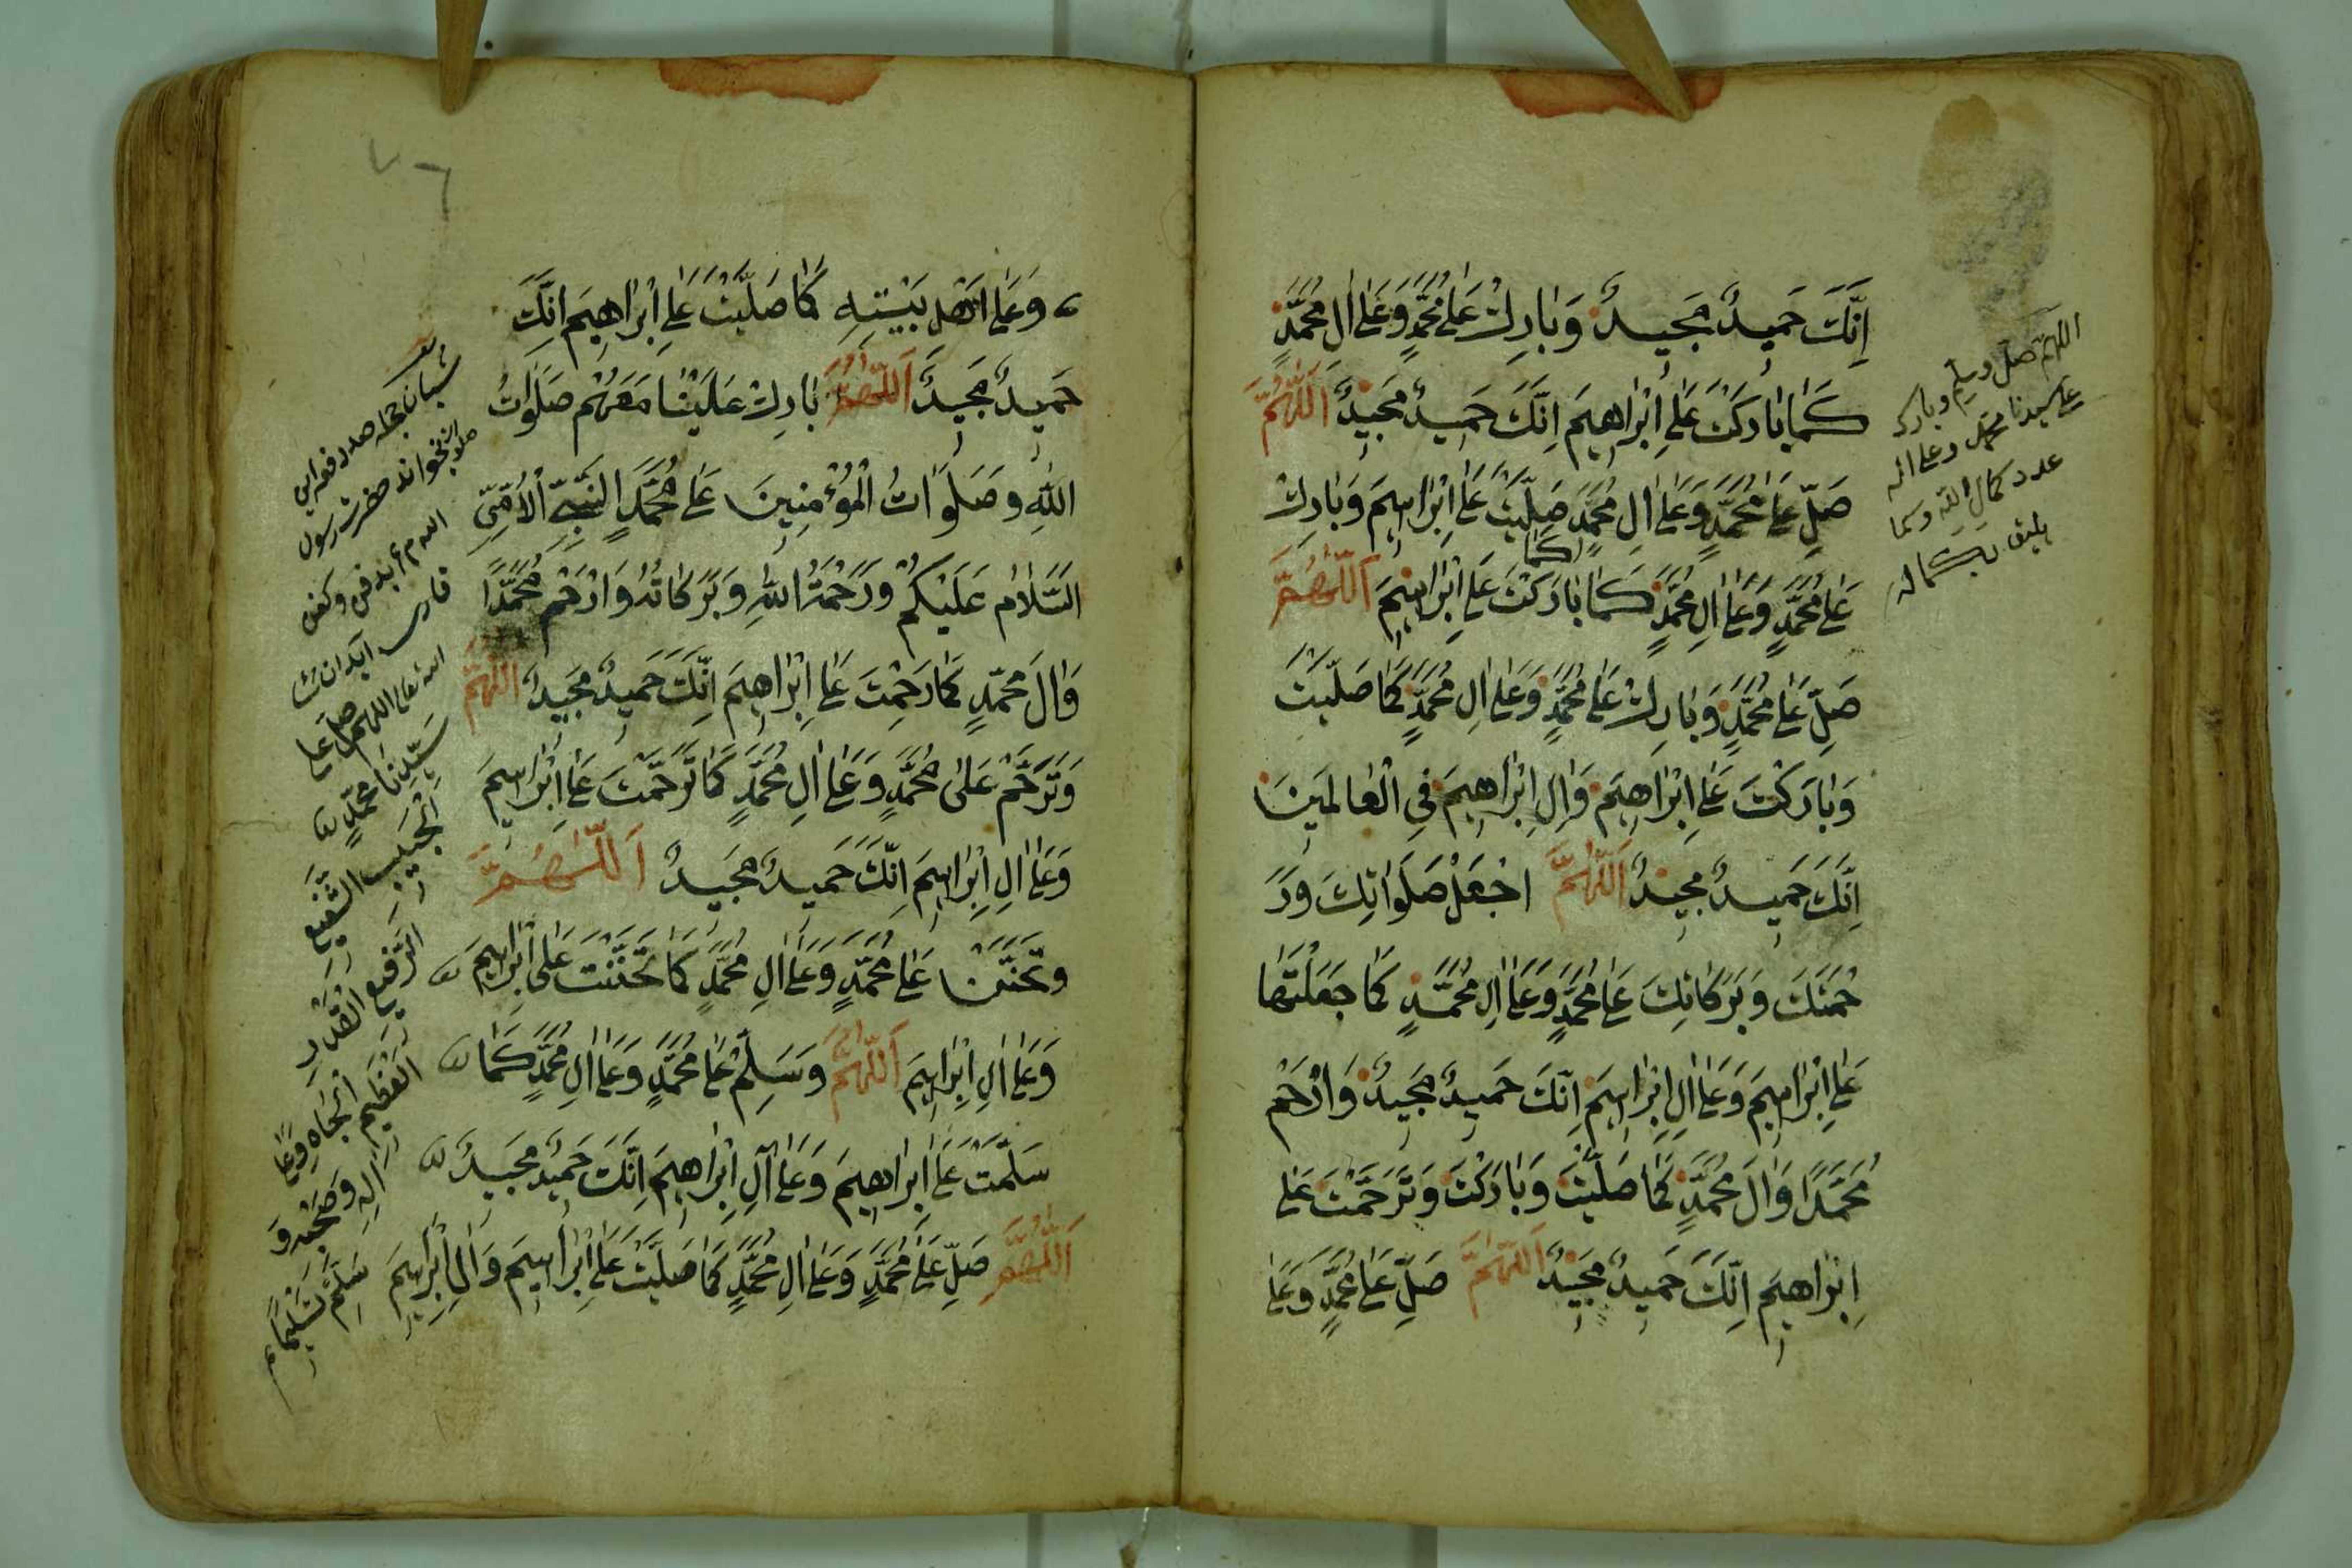 اِنَّكَ حَمِيدٌ مَجِيدٌ وَبَارِكْ عَلَى مُحَمَّدٍ وَعَلَى اٰلِ مُحَمَّدٍ
كَمَا بَارَكْتَ عَلَى اِبْرَاهِيمَ اِنَّكَ حَمِيدٌ مَجِيدٌ اَللّٰهُمَّ
صَلِّ عَلَى مُحَمَّدٍ وَعَلَى اٰلِ مُحَمَّدٍ كما صَلَّيْتَ عَلَى اِبْرَاهِيمَ وَبَارِكْ
عَلَى مُحَمَّدٍ وَعَلَى اٰلِ مُحَمَّدٍ كَمَا بَارَكْتَ عَلَى اِبْرَاهِيمَ اَللّٰهُمَّ
صَلِّ عَلَى مُحَمَّدٍ وَبَارِكْ عَلَى مُحَمَّدٍ وَعَلَى اٰلِ مُحَمَّدٍ كَمَا صَلَّيْتَ
وَبَارَكْتَ عَلَى اِبْرَاهِيمَ وَاٰلِ اِبْرَاهِيمَ فِي الْعَالَمِينَ
اِنَّكَ حَمِيدٌ مَجِيدٌ اَللّٰهُمَّ اجْعَلْ صَلَوَاتِكَ وَرَ
حْمَتَكَ وَبَرَكَاتِكَ عَلَى مُحَمَّدٍ وَعَلَى اٰلِ مُحَمَّدٍ كَمَا جَعَلْتَهَا
عَلَى اِبْرَاهِيمَ وَعَلَى اٰلِ اِبْرَاهِيمَ اِنَّكَ حَمِيدٌ مَجِيدٌ وَارْحَمْ
مُحَمَّدًا وَاٰلَ مُحَمَّدٍ كَمَا صَلَّيْتَ وَبَارَكْتَ وَتَرَحَّمْتَ عَلَى
اِبْرَاهِيمَ اِنَّكَ حَمِيدٌ مَجِيدٌ اَللّٰهُمَّ صَلِّ عَلَى مُحَمَّدٍ وَعَلَى
اللهم صل وسلم وبارك
على سيدنا محمد وعلى اله
عدد كمال الله وكما
يليق بكماله
٧٦
وَعَلَى اَهْلِ بَيْتِهِ كَمَا صَلَّيْتَ عَلَى اِبْرَاهِيمَ اِنَّكَ
حَمِيدٌ مَجِيدٌ اَللّٰهُمَّ بَارِكْ عَلَيْنَا مَعَهُمْ صَلَوَاتُ
اللهِ وَصَلَوَاتُ الْمُؤْمِنِينَ عَلَى مُحَمَّدٍ النَّبِيِّ الْاُمِّيِّ
السَّلَامُ عَلَيْكُمْ وَرَحْمَةُ اللهِ وَبَرَكَاتُهُ وَارْحَمْ مُحَمَّدًا
وَاٰلَ مُحَمَّدٍ كَمَا رَحِمْتَ عَلَى اِبْرَاهِيمَ اِنَّكَ حَمِيدٌ مَجِيدٌ اَللّٰهُمَّ
وَتَرَحَّمْ عَلَى مُحَمَّدٍ وَعَلَى اٰلِ مُحَمَّدٍ كَمَا تَرَحَّمْتَ عَلَى اِبْرَاهِيمَ
وَعَلَى اٰلِ اِبْرَاهِيمَ اِنَّكَ حَمِيدٌ مَجِيدٌ اَللّٰهُمَّ
وَتَحَنَّنْ عَلَى مُحَمَّدٍ وَعَلَى اٰلِ مُحَمَّدٍ كَمَا تَحَنَّنْتَ عَلَى اِبْرَاهِيمَ
وَعَلَى اٰلِ اِبْرَاهِيمَ اَللّٰهُمَّ وَسَلِّمْ عَلَى مُحَمَّدٍ وَعَلَى اٰلِ مُحَمَّدٍ كَمَا
سَلَّمْتَ عَلَى اِبْرَاهِيمَ وَعَلَى اٰلِ اِبْرَاهِيمَ اِنَّكَ حَمِيدٌ مَجِيدٌ
اَللّٰهُمَّ صَلِّ عَلَى مُحَمَّدٍ وَعَلَى اٰلِ مُحَمَّدٍ كَمَا صَلَّيْتَ عَلَى اِبْرَاهِيمَ وَاٰلِ اِبْرَاهِيمَ
بخواند حضرت رسول
الله تعالى اللهم صل على
سَيِّدِنَا مُحَمَّدٍ
الْحَبِيبِ الشَّفِيعِ
الرَّفِيعِ الْقَدْرِ
الْعَظِيمِ الْجَاهِ وَعَلَى
اٰلِهِ وَصَحْبِهِ وَ
سَلِّمْ تَسْلِيمًا